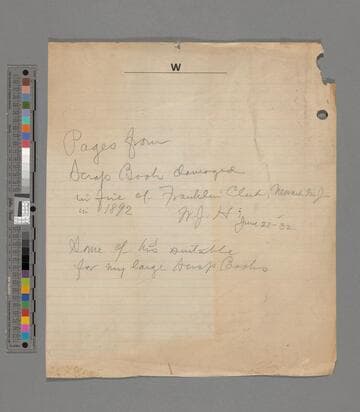 W
Pages from
Scrap Book damaged
in fire of Franklin Club, Newark N.J
in 1892 W. J. H.
June 25-32
Some of his suitable
for my large Scrap Books